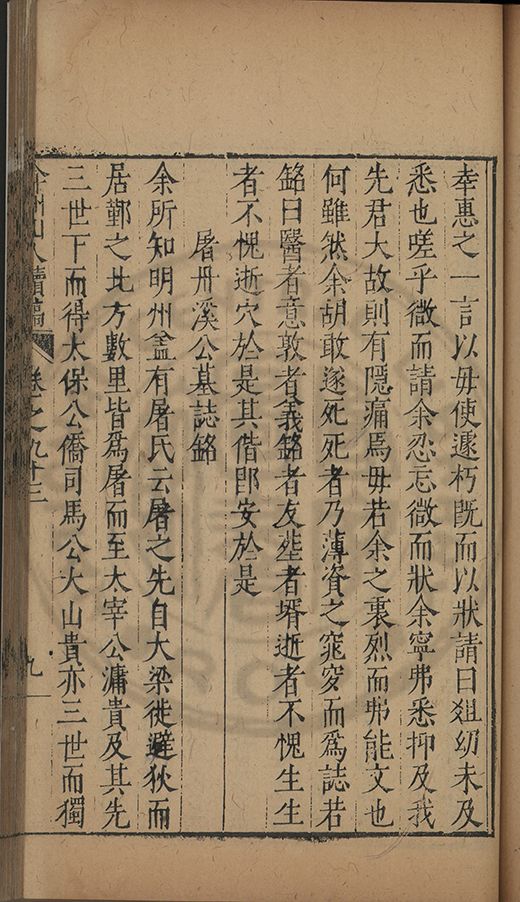 幸惠之一言以毋使遽朽旣而以狀請曰爼㓜未及
悉也嗟乎微而請余忍忘微而狀余寧弗悉抑及我
先君大故則有隱痛焉毋若余之衷烈而弗能文也
何雖然余胡敢遂死死者乃薄資之窀穸而爲誌若
銘曰醫者意敦者義銘者友塟者壻逝者不愧生生
者不愧逝穴於是其偕卽安於是
屠丹溪公墓誌銘
余所知明州盖有屠氏云屠之先自大梁徙避狄而
居鄞之北方數里皆爲屠而至太宰公滽貴及其先
三世下而得太保公僑司馬公大山貴亦三世而獨
弇州山人續稿 卷之九十三 九